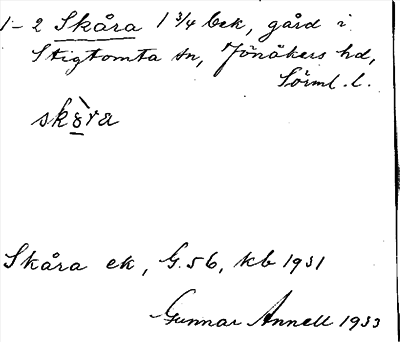 1-2 Skåra 1 3/4 bek, gård i
Stigtomta sn, Jönåkers hd,
Sörml. l.
skò̲ra
Skåra ek, G. 56, kb 1931
Gunnar Annell 1933